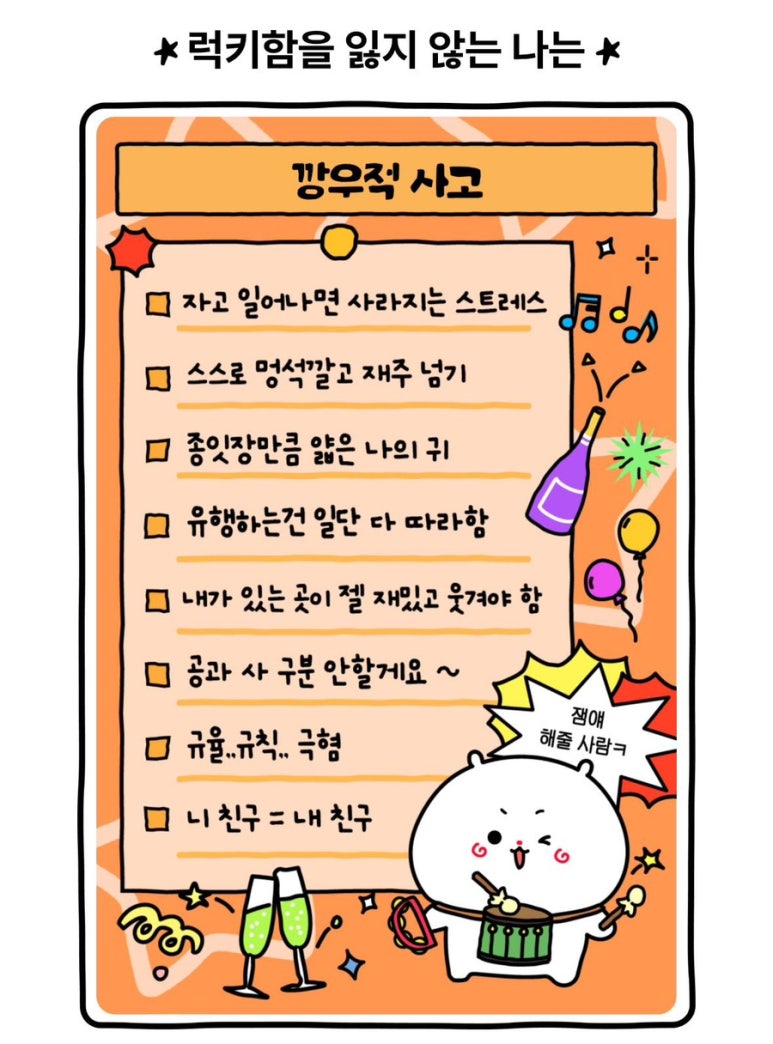 ★ 럭키함을 잃지 않는 나는 ★
깡우적 사고
자고 일어나면 사라지는 스트레스
스스로 멍석깔고 재주 넘기
종잇장만큼 얇은 나의 귀
유행하는건 일단 다 따라함
내가 있는 곳이 젤 재밌고 웃겨야 함
공과 사 구분 안할게요 ~
규율..규칙.. 극혐
니 친구 = 내 친구
잼얘
해줄 사람ㅋ